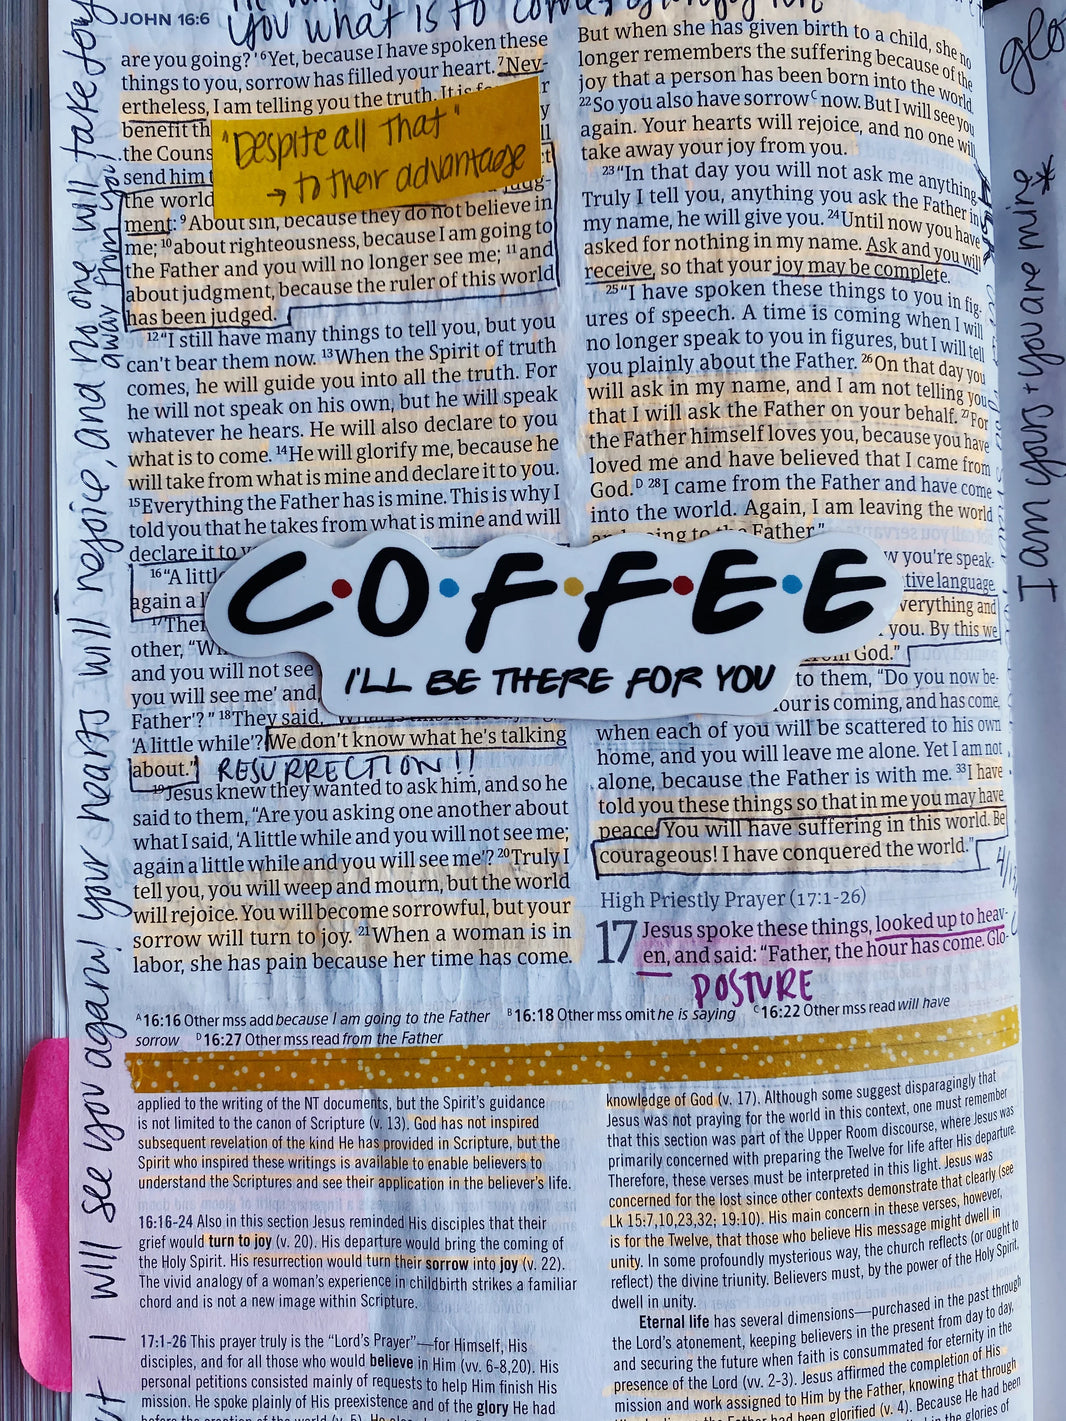 JOHN 16:6
you what is to come
are you going?' ⁶Yet, because I have spoken these
things to you, sorrow has filled your heart. ⁷Nev-
ertheless, I am telling you the truth. It is for
benefit th
the Couns
send him t
the world
"Despite all that"
→ to their advantage
ment: ⁹About sin, because they do not believe in
me; ¹⁰about righteousness, because I am going to
the Father and you will no longer see me; ¹¹and
about judgment, because the ruler of this world
has been judged.
¹²"I still have many things to tell you, but you
can't bear them now. ¹³When the Spirit of truth
comes, he will guide you into all the truth. For
he will not speak on his own, but he will speak
whatever he hears. He will also declare to you
what is to come. ¹⁴He will glorify me, because he
will take from what is mine and declare it to you.
¹⁵Everything the Father has is mine. This is why I
told you that he takes from what is mine and will
declare it to y
¹⁶"A littl
again a l
¹⁷Ther
other, "W
and you will not see
you will see me' and,
Father'?" ¹⁸They said,
'A little while'? We don't know what he's talking
about." RESURRECTION!!
¹⁹Jesus knew they wanted to ask him, and so he
said to them, "Are you asking one another about
what I said, 'A little while and you will not see me;
again a little while and you will see me'? ²⁰Truly I
tell you, you will weep and mourn, but the world
will rejoice. You will become sorrowful, but your
sorrow will turn to joy. ²¹When a woman is in
labor, she has pain because her time has come.
But when she has given birth to a child, she no
longer remembers the suffering because of the
joy that a person has been born into the world.
²²So you also have sorrowᶜ now. But I will see you
again. Your hearts will rejoice, and no one will
take away your joy from you.
²³"In that day you will not ask me anything.
Truly I tell you, anything you ask the Father in
my name, he will give you. ²⁴Until now you have
asked for nothing in my name. Ask and you will
receive, so that your joy may be complete.
²⁵"I have spoken these things to you in fig-
ures of speech. A time is coming when I will
no longer speak to you in figures, but I will tell
you plainly about the Father. ²⁶On that day you
will ask in my name, and I am not telling you
that I will ask the Father on your behalf. ²⁷For
the Father himself loves you, because you have
loved me and have believed that I came from
God.ᴰ ²⁸I came from the Father and have come
into the world. Again, I am leaving the world
and going to the Father."
w you're speak-
tive language
verything and
you. By this we
from God."
to them, "Do you now be-
our is coming, and has come,
when each of you will be scattered to his own
home, and you will leave me alone. Yet I am not
alone, because the Father is with me. ³³I have
told you these things so that in me you may have
peace. You will have suffering in this world. Be
courageous! I have conquered the world."
High Priestly Prayer (17:1-26)
17 Jesus spoke these things, looked up to heav-
en, and said: "Father, the hour has come. Glo-
POSTURE
C•O•F•F•E•E
I'LL BE THERE FOR YOU
ᴬ16:16 Other mss add because I am going to the Father ᴮ16:18 Other mss omit he is saying ᶜ16:22 Other mss read will have
sorrow ᴰ16:27 Other mss read from the Father
applied to the writing of the NT documents, but the Spirit's guidance
is not limited to the canon of Scripture (v. 13). God has not inspired
subsequent revelation of the kind He has provided in Scripture, but the
Spirit who inspired these writings is available to enable believers to
understand the Scriptures and see their application in the believer's life.
16:16-24 Also in this section Jesus reminded His disciples that their
grief would turn to joy (v. 20). His departure would bring the coming of
the Holy Spirit. His resurrection would turn their sorrow into joy (v. 22).
The vivid analogy of a woman's experience in childbirth strikes a familiar
chord and is not a new image within Scripture.
17:1-26 This prayer truly is the "Lord's Prayer"—for Himself, His
disciples, and for all those who would believe in Him (vv. 6-8,20). His
personal petitions consisted mainly of requests to help Him finish His
mission. He spoke plainly of His preexistence and of the glory He had
before the creation of the world (v. 5). He also
knowledge of God (v. 17). Although some suggest disparagingly that
Jesus was not praying for the world in this context, one must remember
that this section was part of the Upper Room discourse, where Jesus was
primarily concerned with preparing the Twelve for life after His departure.
Therefore, these verses must be interpreted in this light. Jesus was
concerned for the lost since other contexts demonstrate that clearly (see
Lk 15:7,10,23,32; 19:10). His main concern in these verses, however,
is for the Twelve, that those who believe His message might dwell in
unity. In some profoundly mysterious way, the church reflects (or ought to
reflect) the divine triunity. Believers must, by the power of the Holy Spirit,
dwell in unity.
Eternal life has several dimensions—purchased in the past through
the Lord's atonement, keeping believers in the present from day to day,
and securing the future when faith is consummated for eternity in the
presence of the Lord (vv. 2-3). Jesus affirmed the completion of His
mission and work assigned to Him by the Father, knowing that through
had been glorified (v. 4). Because He had been
in the glories of
I will see you again! your hearts will rejoice, and no one will take your joy
away from you
I am yours + you are mine *